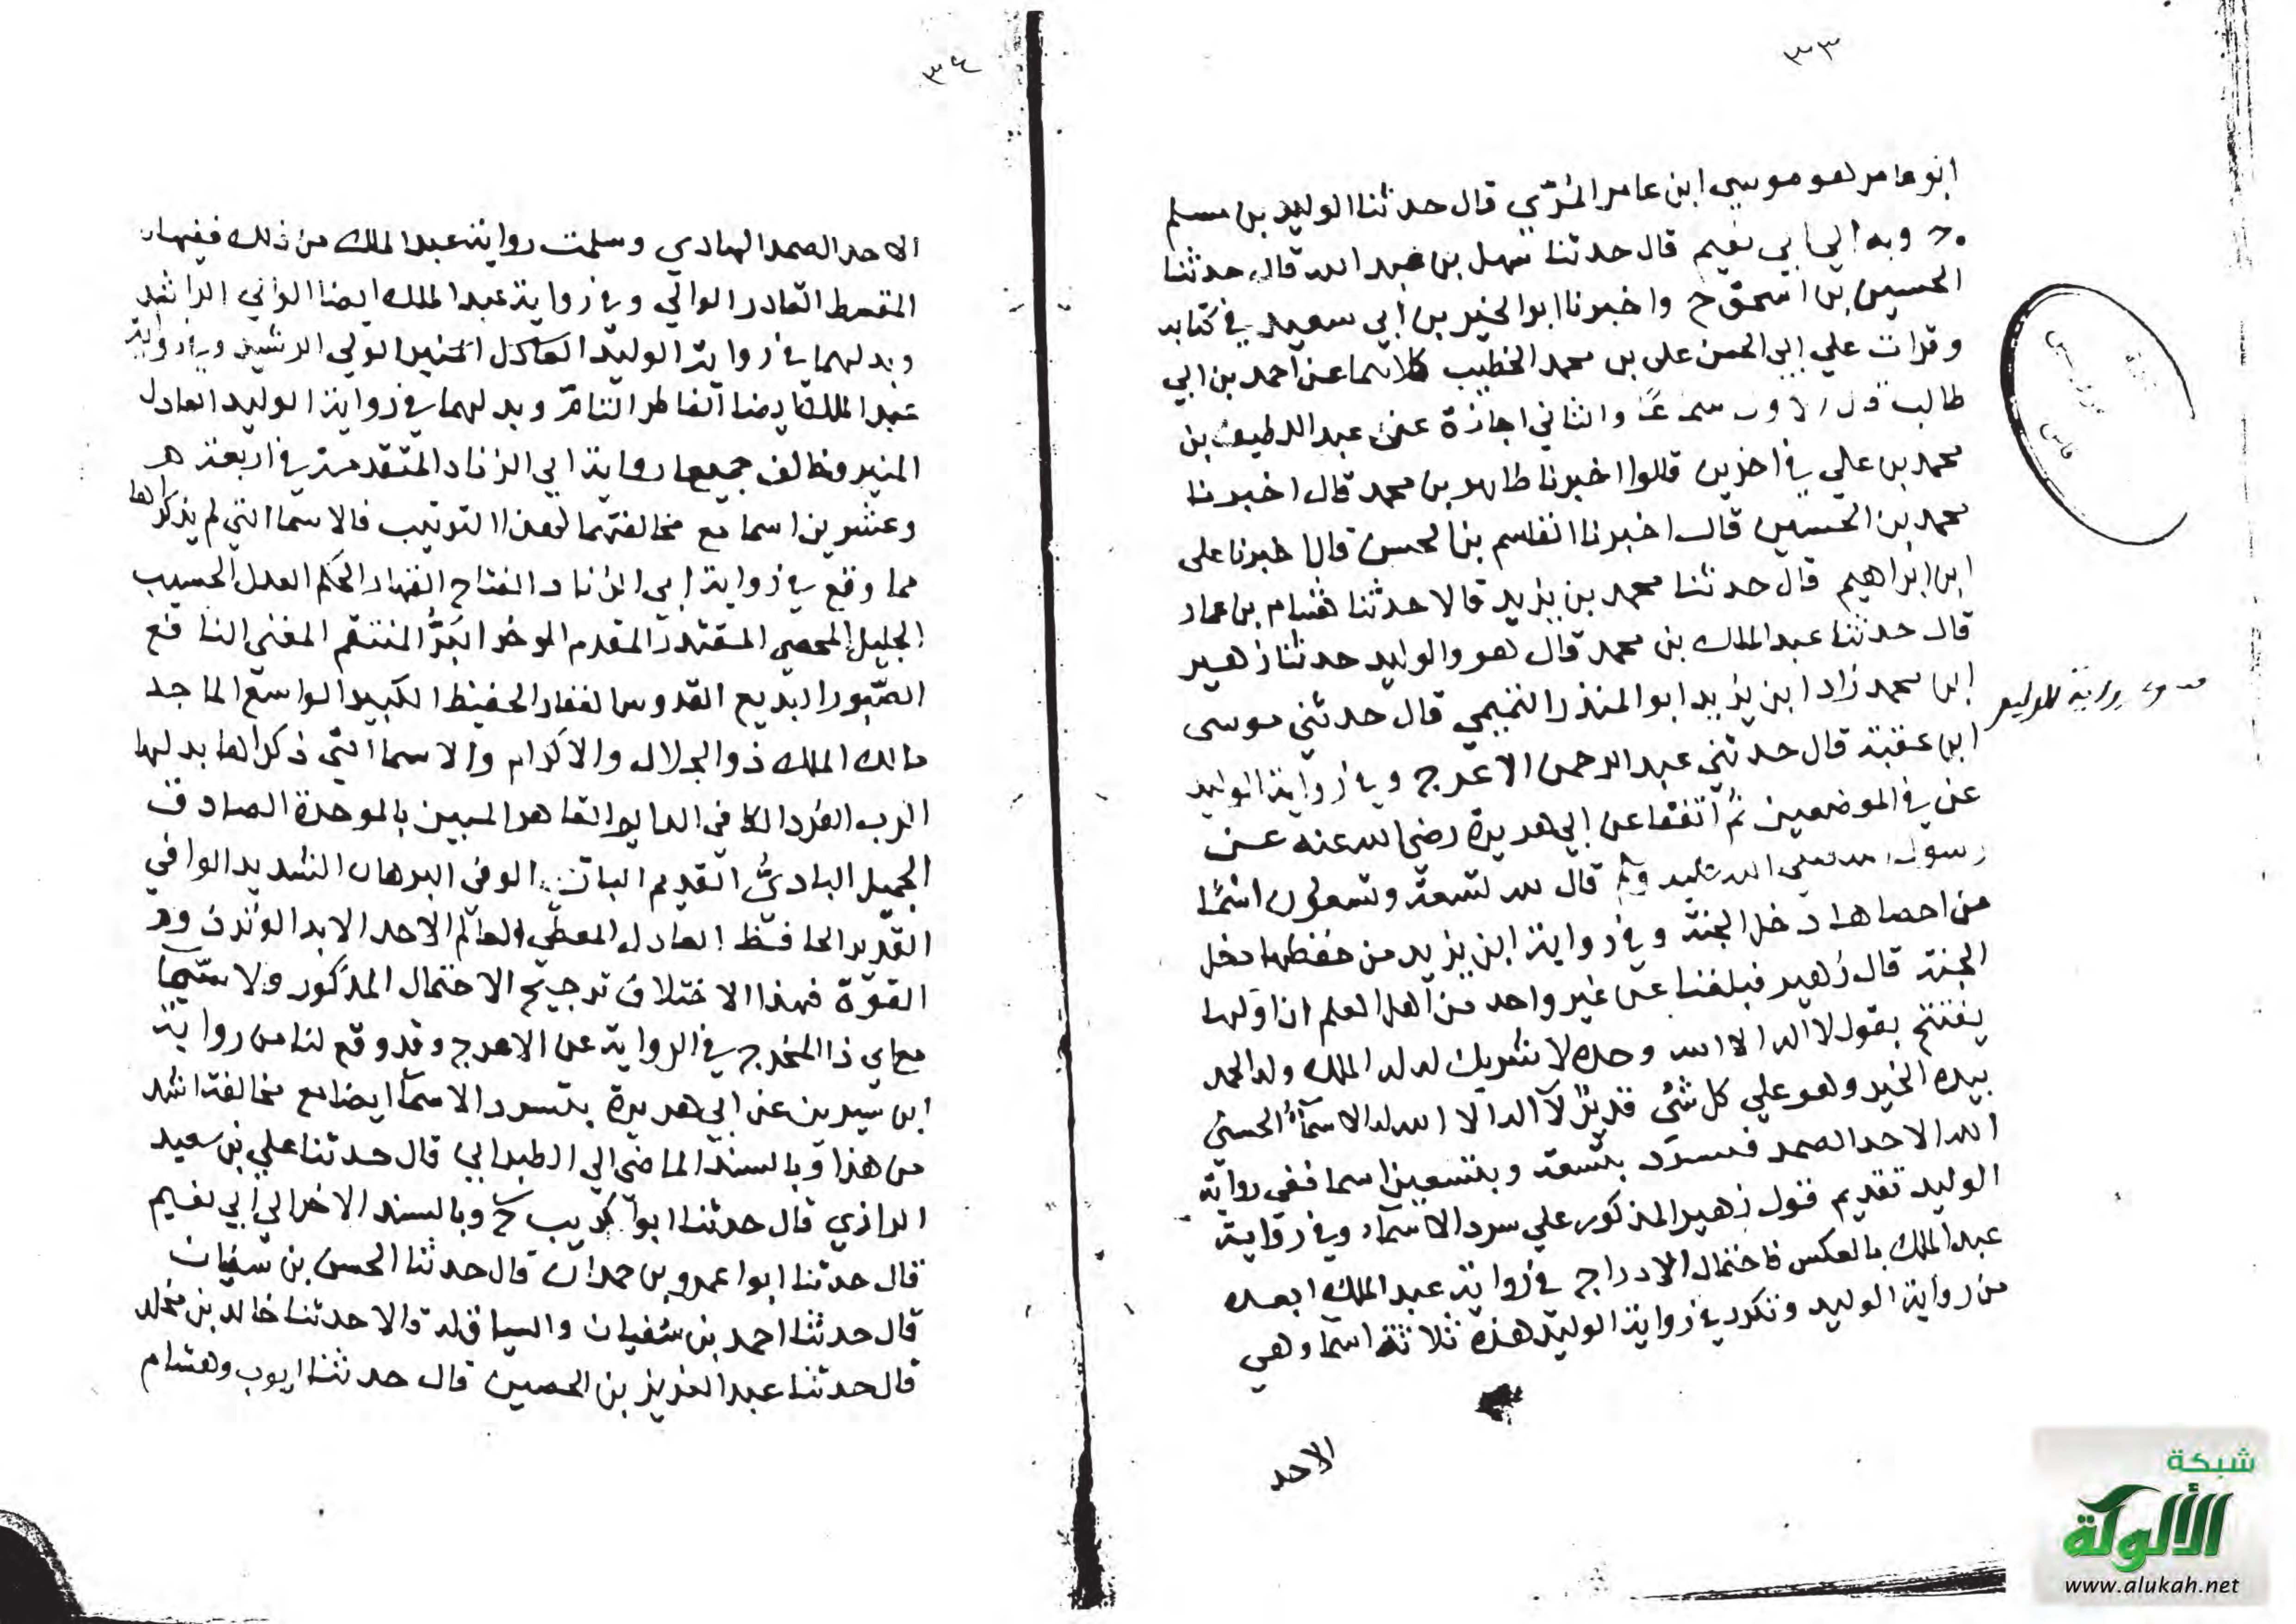 ٣٣
ابو عامر هو موسي ابن عامر المُرّي قال حدثنا الوليد بن مسلم
ح وبه الي ابي نعيم قال حدثنا سهل بن عبد الله قال حدثنا
الحسين بن اسحق ح واخبرنا ابو الخير بن ابي سعيد في كتابه
وقرات علي ابي الحسن علي بن محمد الخطيب كلاهما عن احمد بن ابي
طالب قال الاول سماعًا والثاني اجازة عن عبد اللطيف بن
محمد بن علي في اخرين قالوا اخبرنا طاهر بن محمد قال اخبرنا
محمد بن الحسين قال اخبرنا القاسم بن الحسن قال اخبرنا علي
ابن ابراهيم قال حدثنا محمد بن يزيد قالا حدثنا هشام بن عمار
قال حدثنا عبد الملك بن محمد قال هو والوليد حدثنا زهير
ابن محمد زاد ابن يزيد ابو المنذر التميمي قال حدثني موسى
ابن عقبة قال حدثني عبد الرحمن الاعرج وفي رواية الوليد
عن في الموضعين ثم اتفقا عن ابي هريرة رضي الله عنه عن
رسول الله صلي الله عليه و قال لله تسعة وتسعون اسمًا
من احصاها دخل الجنة وفي رواية ابن يزيد من حفظها دخل
الجنة قال زهير فبلغنا عن غير واحد من اهل العلم ان اولها
يفتتح بقول لا اله الا الله وحده لا شريك له له الملك وله الحمد
بيده الخير وهو علي كل شئ قديرٌ لا اله الا الله له الاسمآءُ الحسنى
الله الاحد الصمد فسرد بتسعة وبتسعين اسما ففي رواية
الوليد تقديم قول زهير المذكور علي سرد الاسمآء وفي رواية
عبد الملك بالعكس فاحتمال الادراج في رواية عبد الملك ابعد
من رواية الوليد وتكرر في رواية الوليد هذه ثلاثة اسمآ وهي
الاحد
رواية الوليد
٣٤
الاحد الصمد الهادي وسلمت رواية عبد الملك من ذلك ففيها
المقسط القادر الوالي وفي رواية عبد الملك ايضا الوالي الراشد
وبدلهما في رواية الوليد العادل المنير الولي الرشيد وفي رواية
عبد الملك ايضا الفاطر التامّ وبدلهما في رواية الوليد العادل
المنير وخالف جميعا رواية ابي الزناد المتقدمة في اربعة
وعشرين اسما مع مخالفتهما لهذا الترتيب فالاسما التي لم يذكراها
مما وقع في رواية ابي الزناد الفتاح القهار الحكم العدل الحسيب
الجليل المحصي المقتدر المقدم الموخر البَرُّ المنتقم المغني النافع
الصّبور البديع القدوس الغفار الحفيظ الكبير الواسع الماجد
مالك الملك ذو الجلال والاكرام والاسما التي ذكراها بدلها
الرب الفرد الكافي الدايم القاهر المبين بالموحدة الصادق
الجميل البادئُ القديم البار الوفي البرهان الشديد الواقي
القدير الحافظ العادل المعطي العالم الاحد الابد الوتر ذو
القوّة فهذا الاختلاف ترجيح الاحتمال المذكور ولا سيّما
مع اي ذا المخرج في الرواية عن الاعرج وقد وقع لنا من رواية
ابن سيرين عن ابي هريرة بتسرد الاسمآ ايضا مع مخالفة اشد
من هذا وبالسند الماضي الي الطبراني قال حدثنا علي بن سعيد
الرازي قال حدثنا ابوا كريب ح وبالسند الاخر الي ابي نعيم
قال حدثنا ابوا عمرو بن حمدان قال حدثنا الحسن بن سفيان
قال حدثنا احمد بن سفيان والسياق له قالا حدثنا خالد بن مخلد
قال حدثنا عبد العزيز بن الحصين قال حدثنا ايوب وهشام
شبكة
الألوكة
www.alukah.net